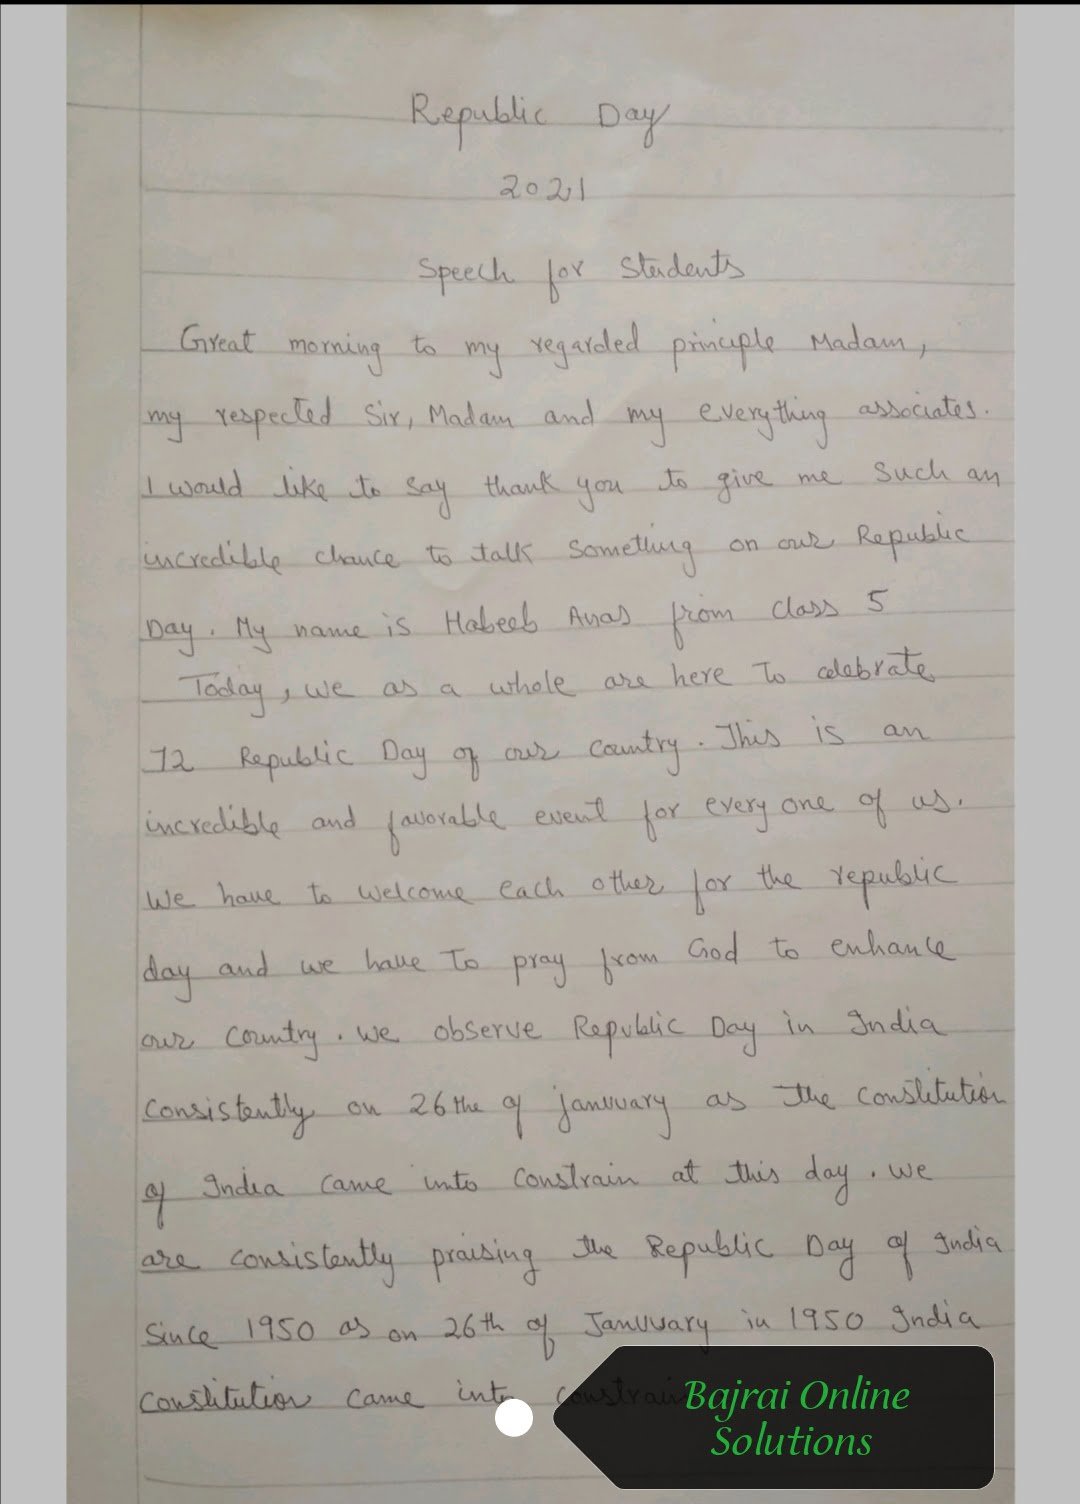 Republic Day
2021
Speech for Students
Great morning to my regarded principle Madam,
my respected Sir, Madam and my everything associates.
I would like to say thank you to give me such an
incredible chance to talk something on our Republic
Day. My name is Habeeb Anas from class 5
Today, we as a whole are here To celebrate
72 Republic Day of our country. This is an
incredible and favorable event for every one of us.
We have to welcome each other for the republic
day and we have To pray from God to enhance
our country. We observe Republic Day in India
consistently on 26the of januuary as the constitution
of India came into constrain at this day. We
are consistently praising the Republic Day of India
since 1950 as on 26th of Januuary in 1950 India
constitution came into constrain
Bajrai Online
Solutions